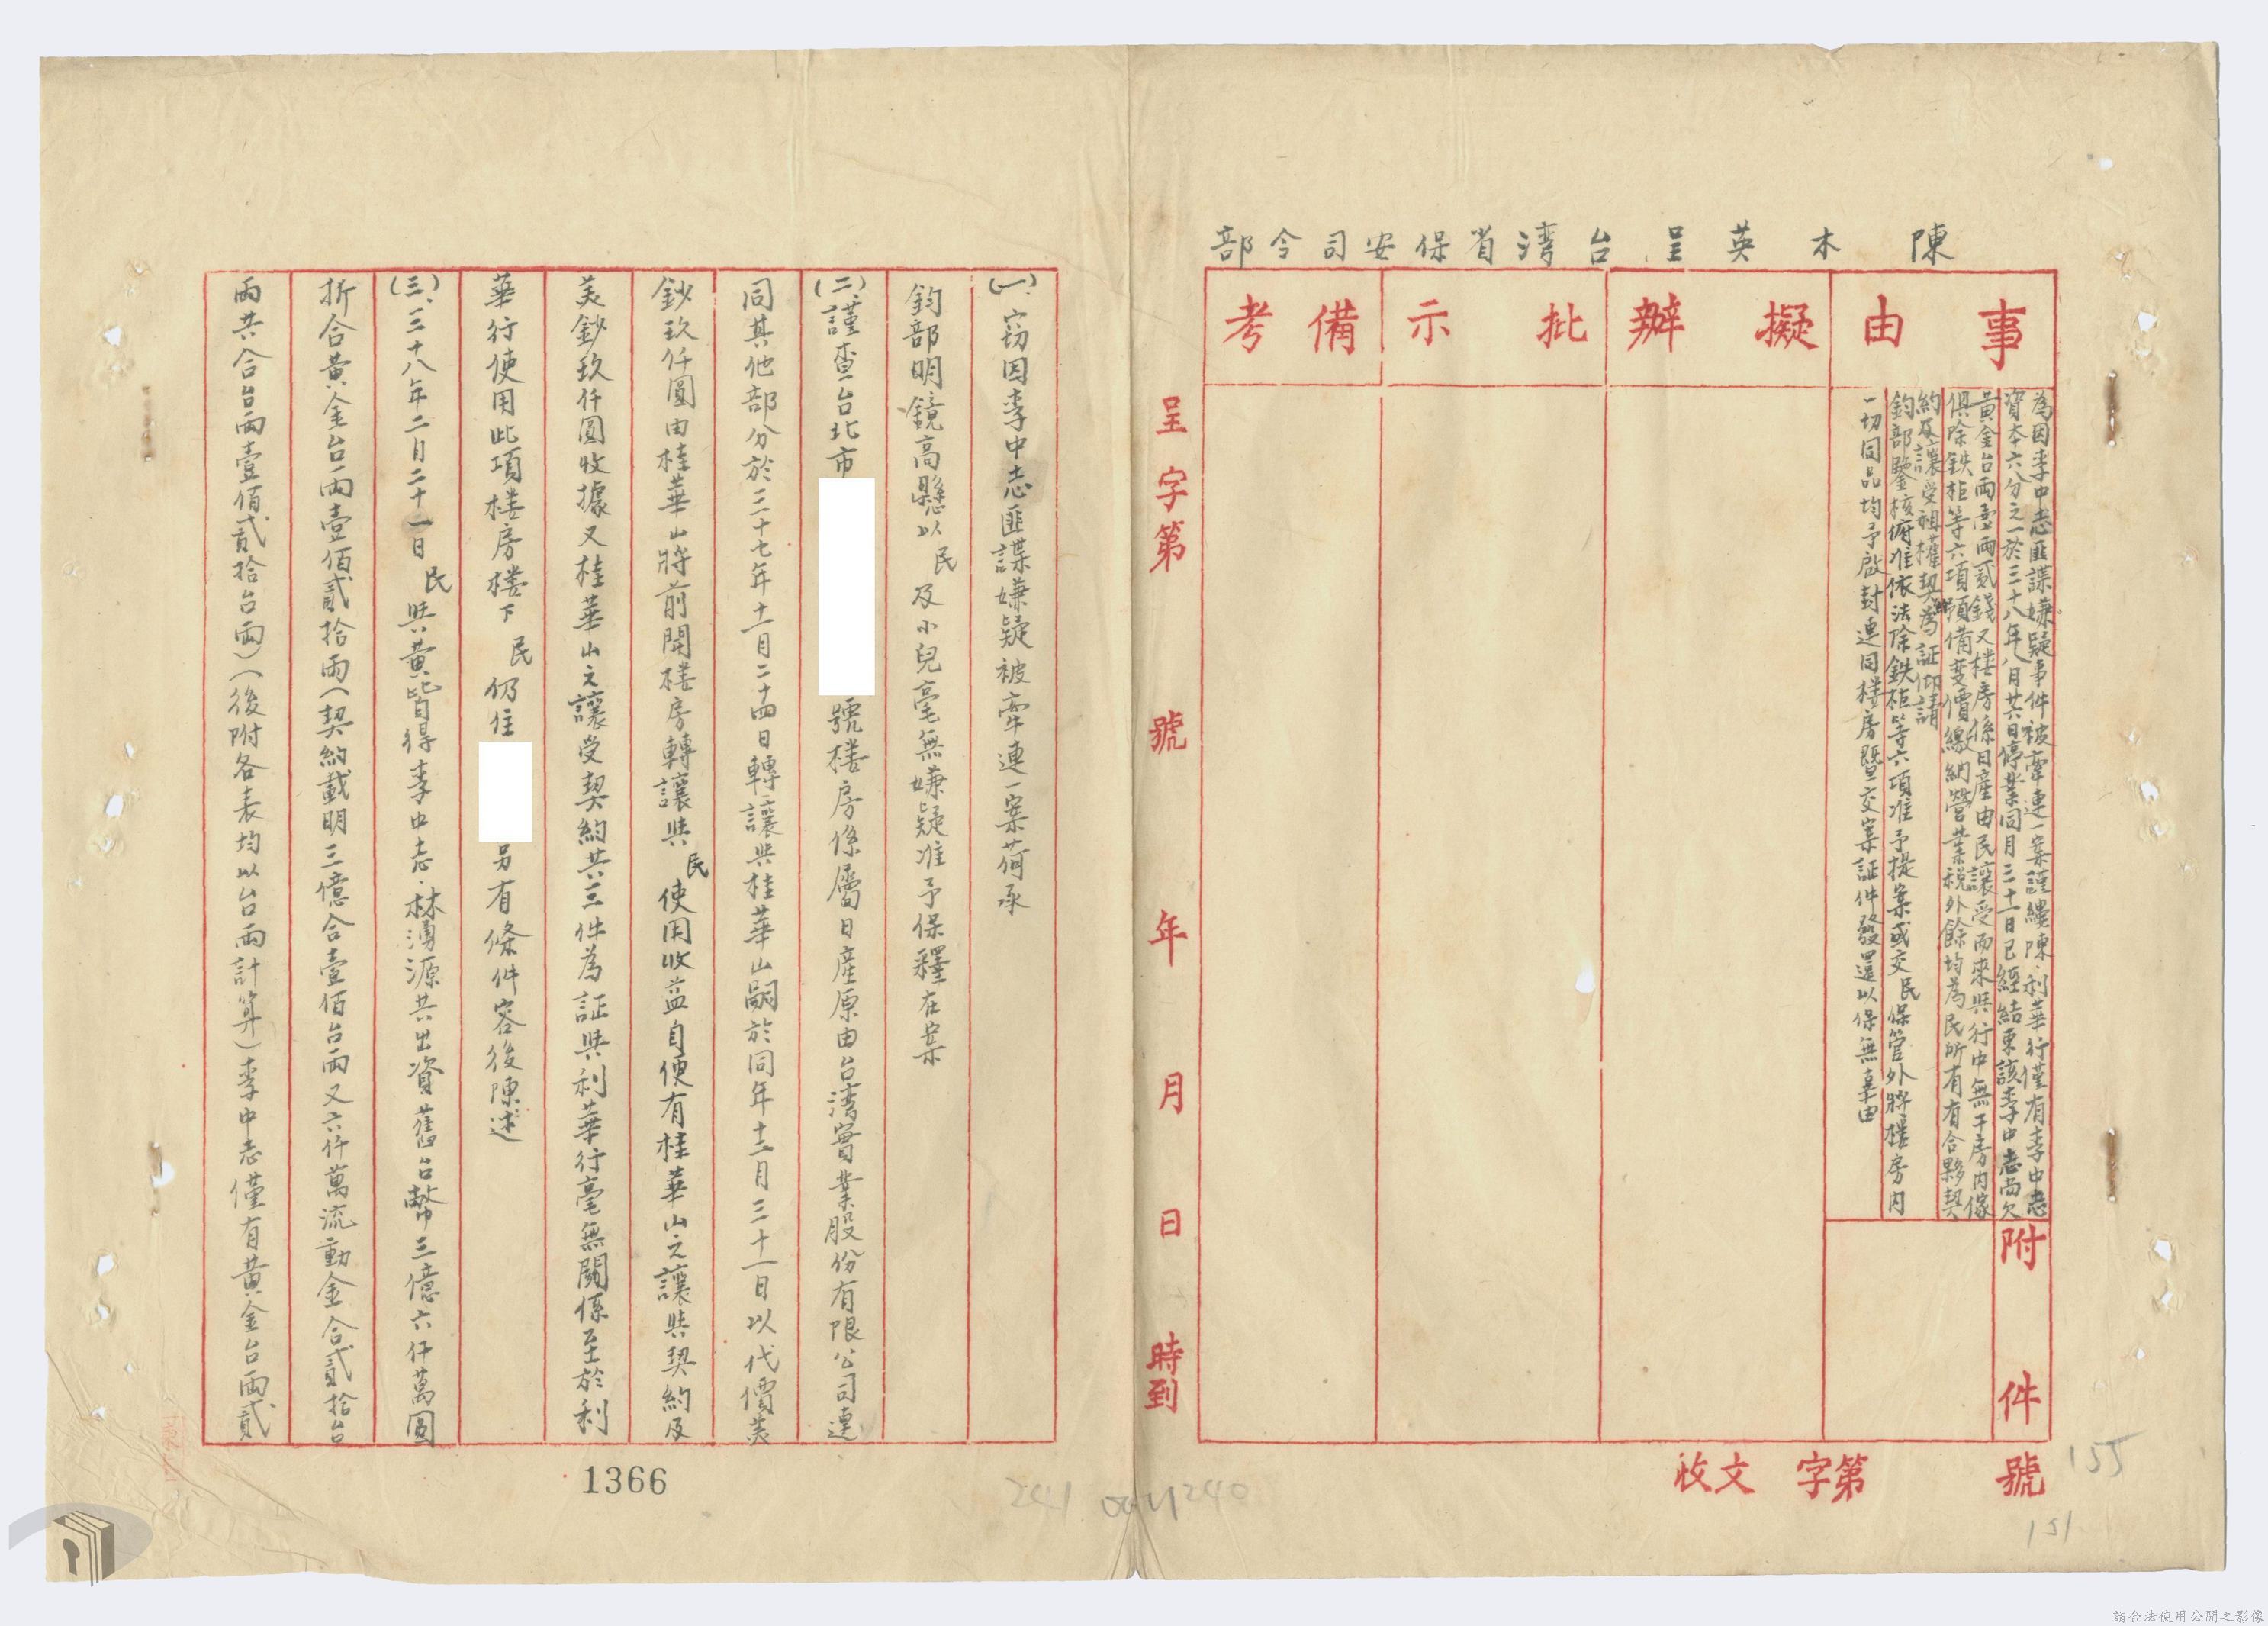 陳木英呈台湾省保安司令部
事由
擬辦
批示
備考
為因李中志匪諜嫌疑事件被牽連一案謹縷陳利華行僅有李中志
資本六八分之一於三十八年八月廿六日停業同月三十一日已經結束該李中志尚欠
黃金台両壹両貳錢又楼房係日產由民讓受而來與行中無干房内傢
俱除鉄柜等六項預備变價繳納營業税外餘均為民所有有合夥契
約及讓受租權契為証仰請
鈞部鑒核俯准依法除鉄柜等六項准予提案或交民保管外將楼房内
一切同品均予啟封連同楼房暨交案証件發還以保無辜由
附件
呈字第 號 年 月 日 時到
收文 字第 號
155
151
(一)、窃因李中志匪諜嫌疑被牽連一案荷承
鈞部明鏡高懸以民及小兒毫無嫌疑准予保釋在案
(二)、謹查台北市 號楼房係屬日產原由台湾實業股份有限公司連
同其他部分於三十七年十一月二十四日轉讓與桂華山嗣於同年十二月三十一日以代價美
鈔玖仟圓由桂華山將前開楼房轉讓與民使用收益自便有桂華山之讓與契約及
美鈔玖仟圓收據又桂華山之讓受契約共三件為証與利華行毫無關係至於利
華行使用此項楼房楼下民仍住 另有條件容後陳述
(三)、三十八年二月二十一日民與黃皆得李中志、林湧源共出資舊台幣三億六仟萬圓
折合黃金台両壹佰貳拾両(契約載明三億合壹佰台両又六仟萬流動金合貳拾台
両共合台両壹佰貳拾台両)(後附各表均以台両計算)李中志僅有黃金台両貳
1366
241
240
請合法使用公開之影像